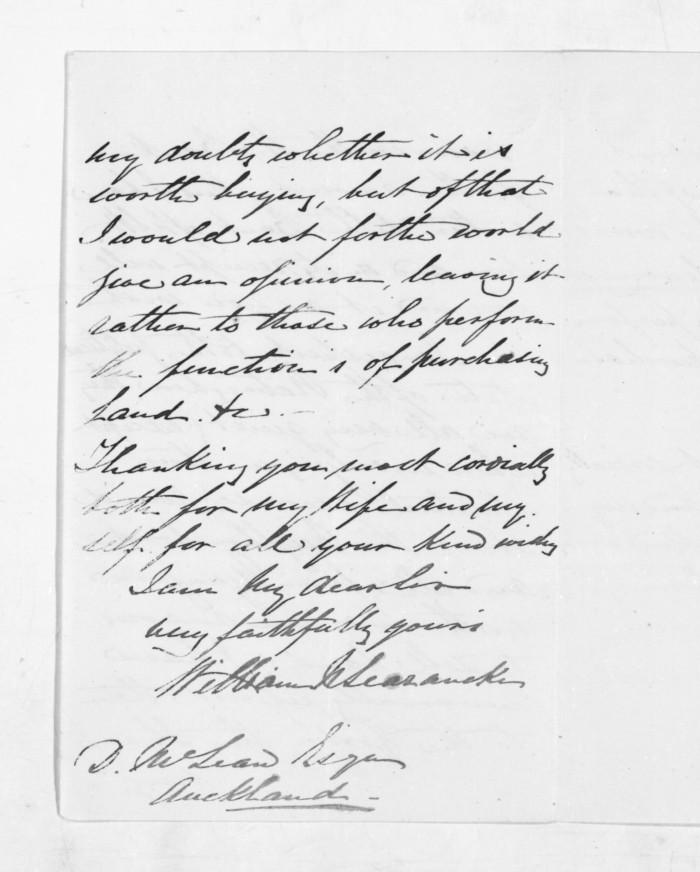 my doubts whether it is
worth buying, but of that
I would not for the world
give an opinion, leaving it
rather to those who perform
the functions of purchasing
Land. &c. -
Thanking you most cordially
both for my Wife and my
self for all your kind wishes
I am My dear Sir
very faithfully yours
William N Searancke
D. McLean Esqre
Auckland -